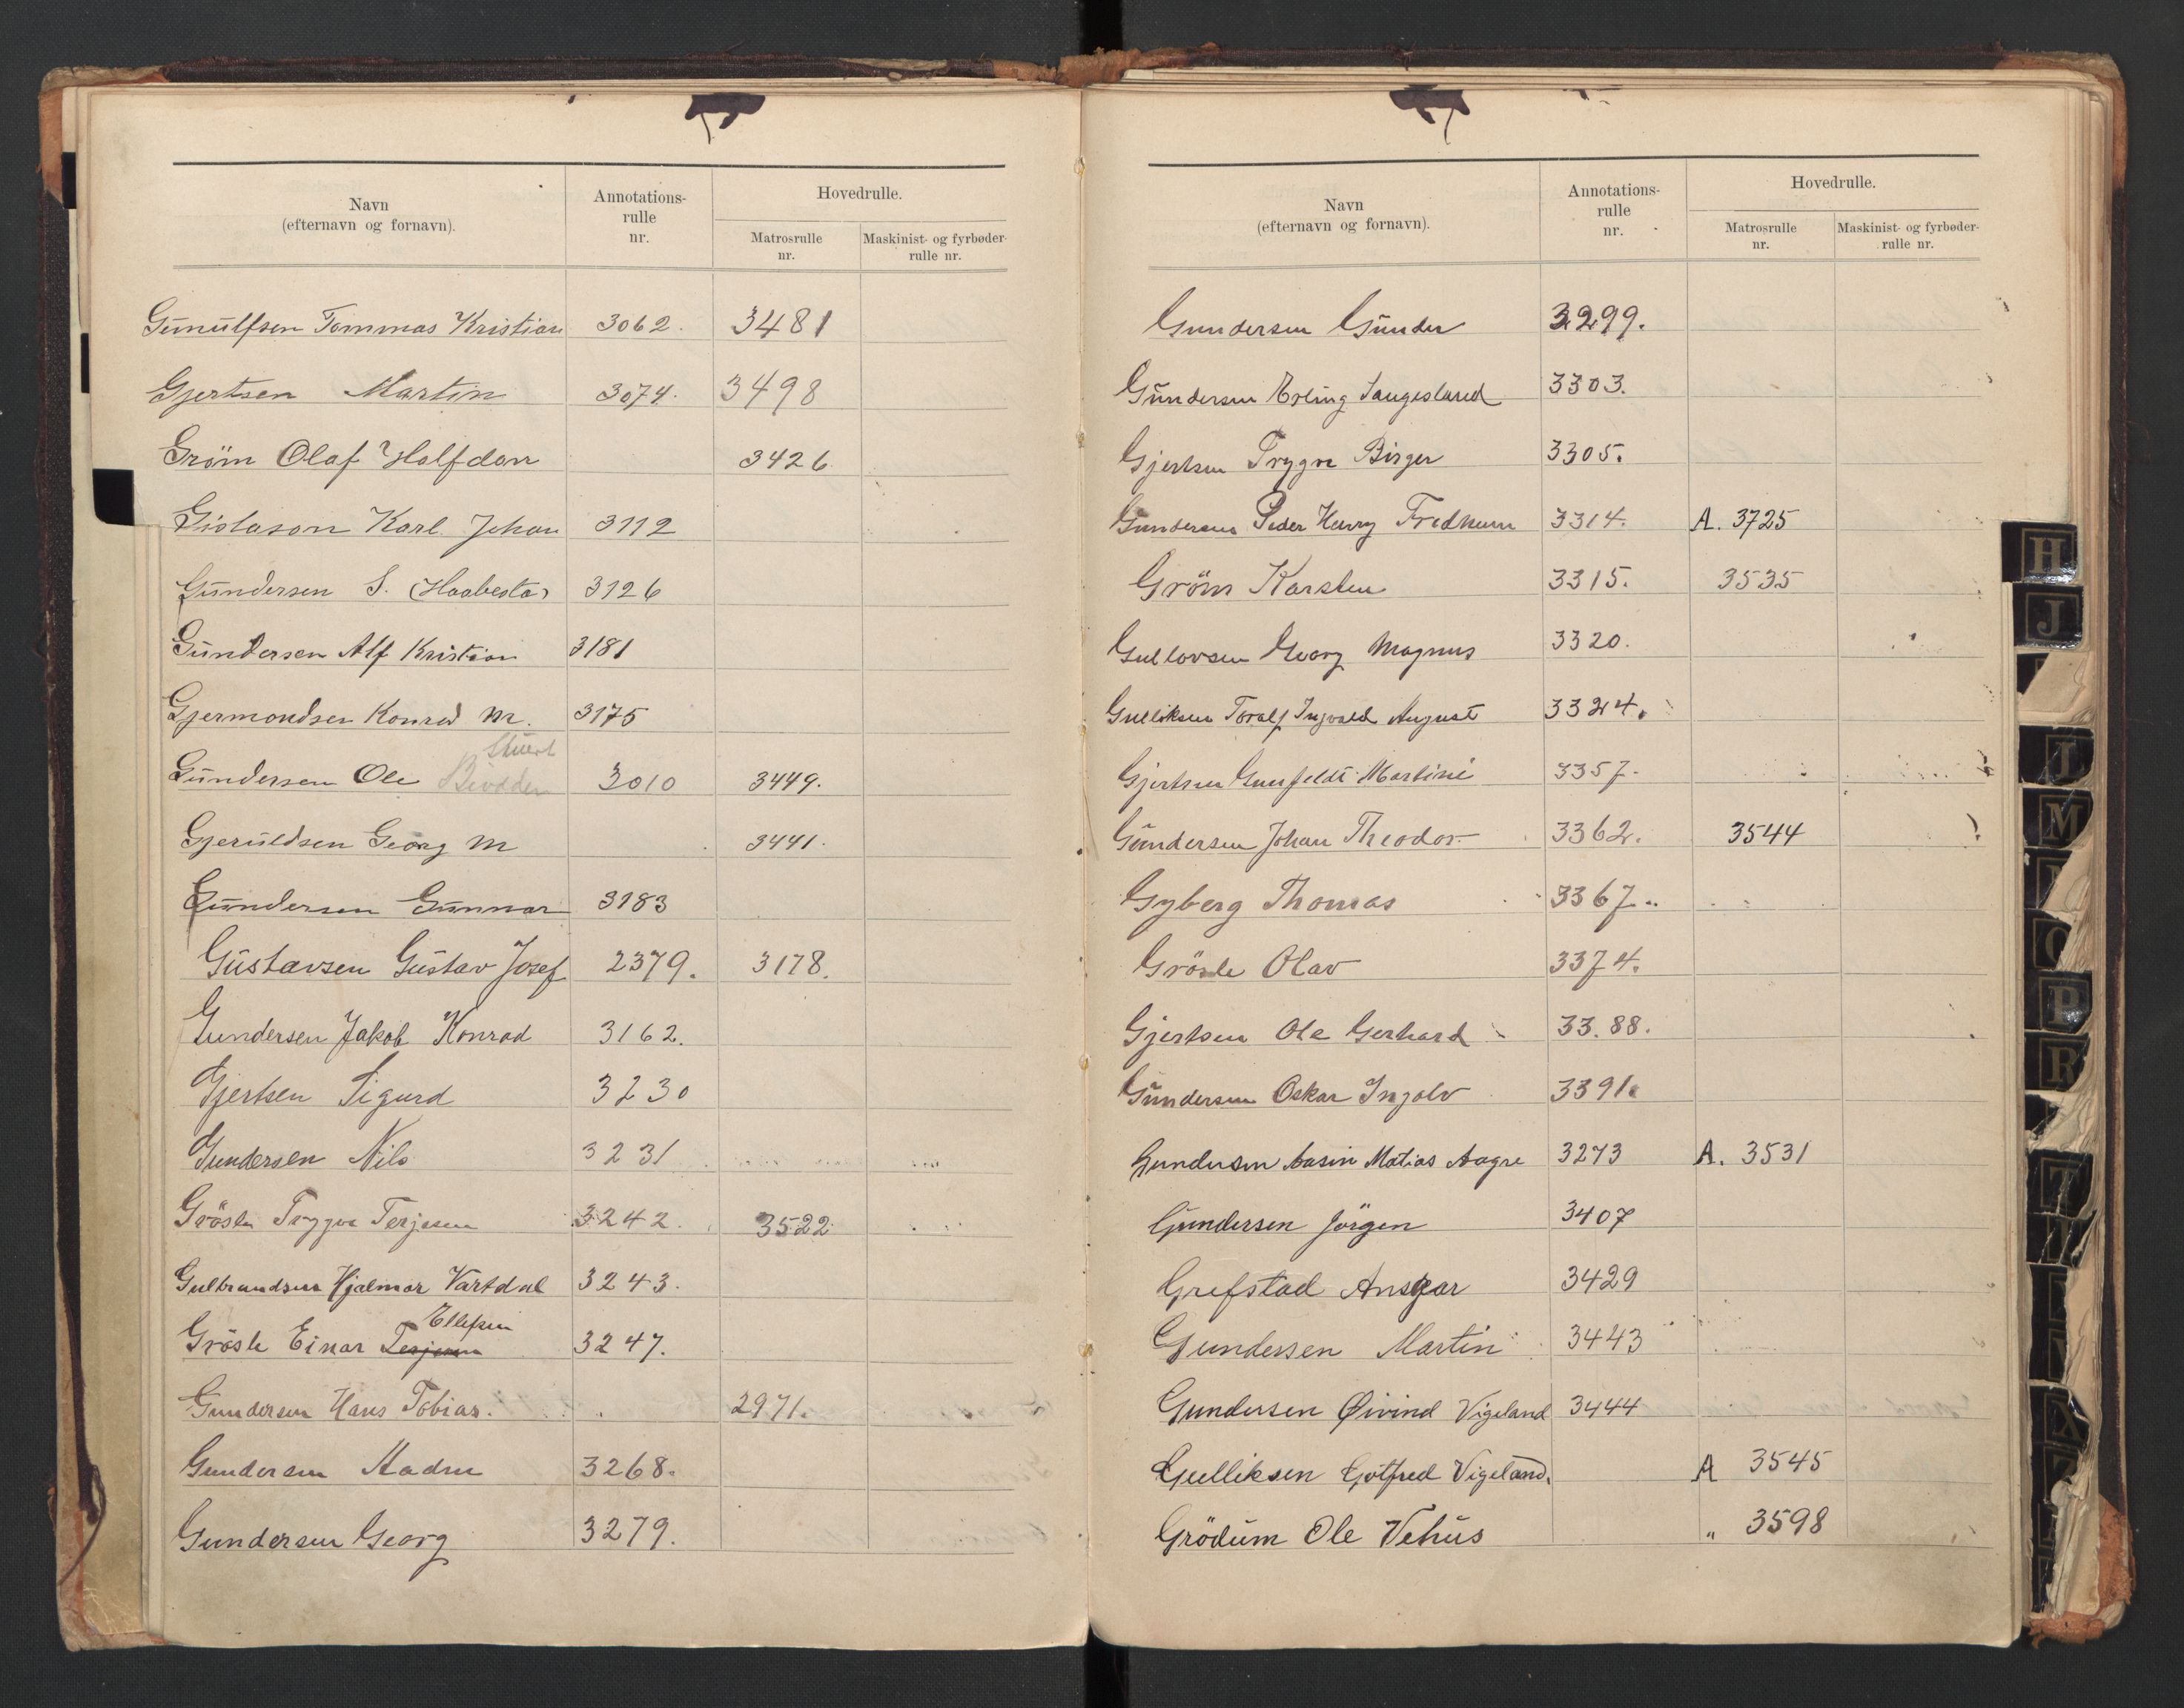 Navn
(efternavn og fornavn).
Annotations-
rulle
nr.
Hovedrulle.
Matrosrulle
nr.
Maskinist- og fyrbøder-
rulle nr.
Gunulfsen Tommas Kristian 3062. 3481
Gjertsen Martin 3074. 3498
Gröm Olaf Halfdan 3426
Gislason Karl Johan 3112
Gundersen S. (Haabesta) 3126
Gundersen Alf Kristian 3181
Gjermondsen Konrad M. 3175
Stuert
Gundersen Ole Brodden 3010 3449.
Gjeruldsen Georg M 3441.
Gundersen Gunnar 3183
Gustavsen Gustav Josef 2379. 3178.
Gundersen Jakob Konrad 3162.
Gjertsen Sigurd 3230
Gundersen Nils 3231
Grösle Trygve Terjesen 3242. 3522
Gulbrandsen Hjalmar Vartdal 3243.
Ellefsen
Grösle Einar Terjesen 3247.
Gundersen Hans Tobias. 2971.
Gundersen Aadne 3268.
Gundersen Georg 3279.
Navn
(efternavn og fornavn).
Annotations-
rulle
nr.
Hovedrulle.
Matrosrulle
nr.
Maskinist- og fyrbøder-
rulle nr.
Gundersen Gunder 3299.
Gundersen Erling Laugesland 3303.
Gjertsen Trygve Birger 3305.
Gundersen Peder Henry Fredheim 3314. A. 3725
Gröm Karsten 3315. 3535
Gullovsen Georg Magnus 3320.
Gulliksen Toralf Ingvald August 3324.
Gjertsen Gunfeldt Martini 3357.
Gundersen Johan Theodor 3362. 3544
Gyberg Thomas 3367.
Grösle Olav 3374.
Gjertsen Ole Gerhard 33.88.
Gundersen Oskar Ingolv 3391.
Gundersen Aasin Matias Aagre 3273 A. 3531
Gundersen Jörgen 3407
Grefstad Ansgar 3429
Gundersen Martin 3443
Gundersen Øivind Vigeland 3444
Gulliksen Gotfred Vigeland. A 3545
Grödum Ole Vehus " 3598
H
J
J
M
O
P
R
T
X